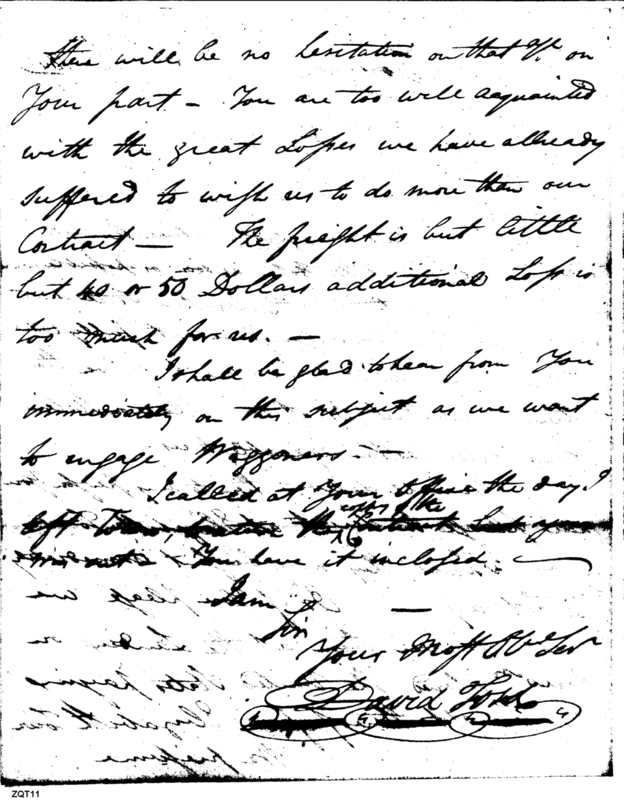 there will be no hesitation on that Pt. on
Your part – You are too well acquainted
with the great Losses we have allready
suffered to wish us to do more than our
Contract – The freight is but little
but 40 or 50 Dollars additional Loss is
too much for us. –
I shall be glad to hear from You
immediately on this subject as we want
to engage Waggoners. –
I called at Your Office the day I
copy of the
left Town, to Contract but you
was not – You have it inclosed –
I am –
Sir
Your Most Obe Ser
David
ZQT11